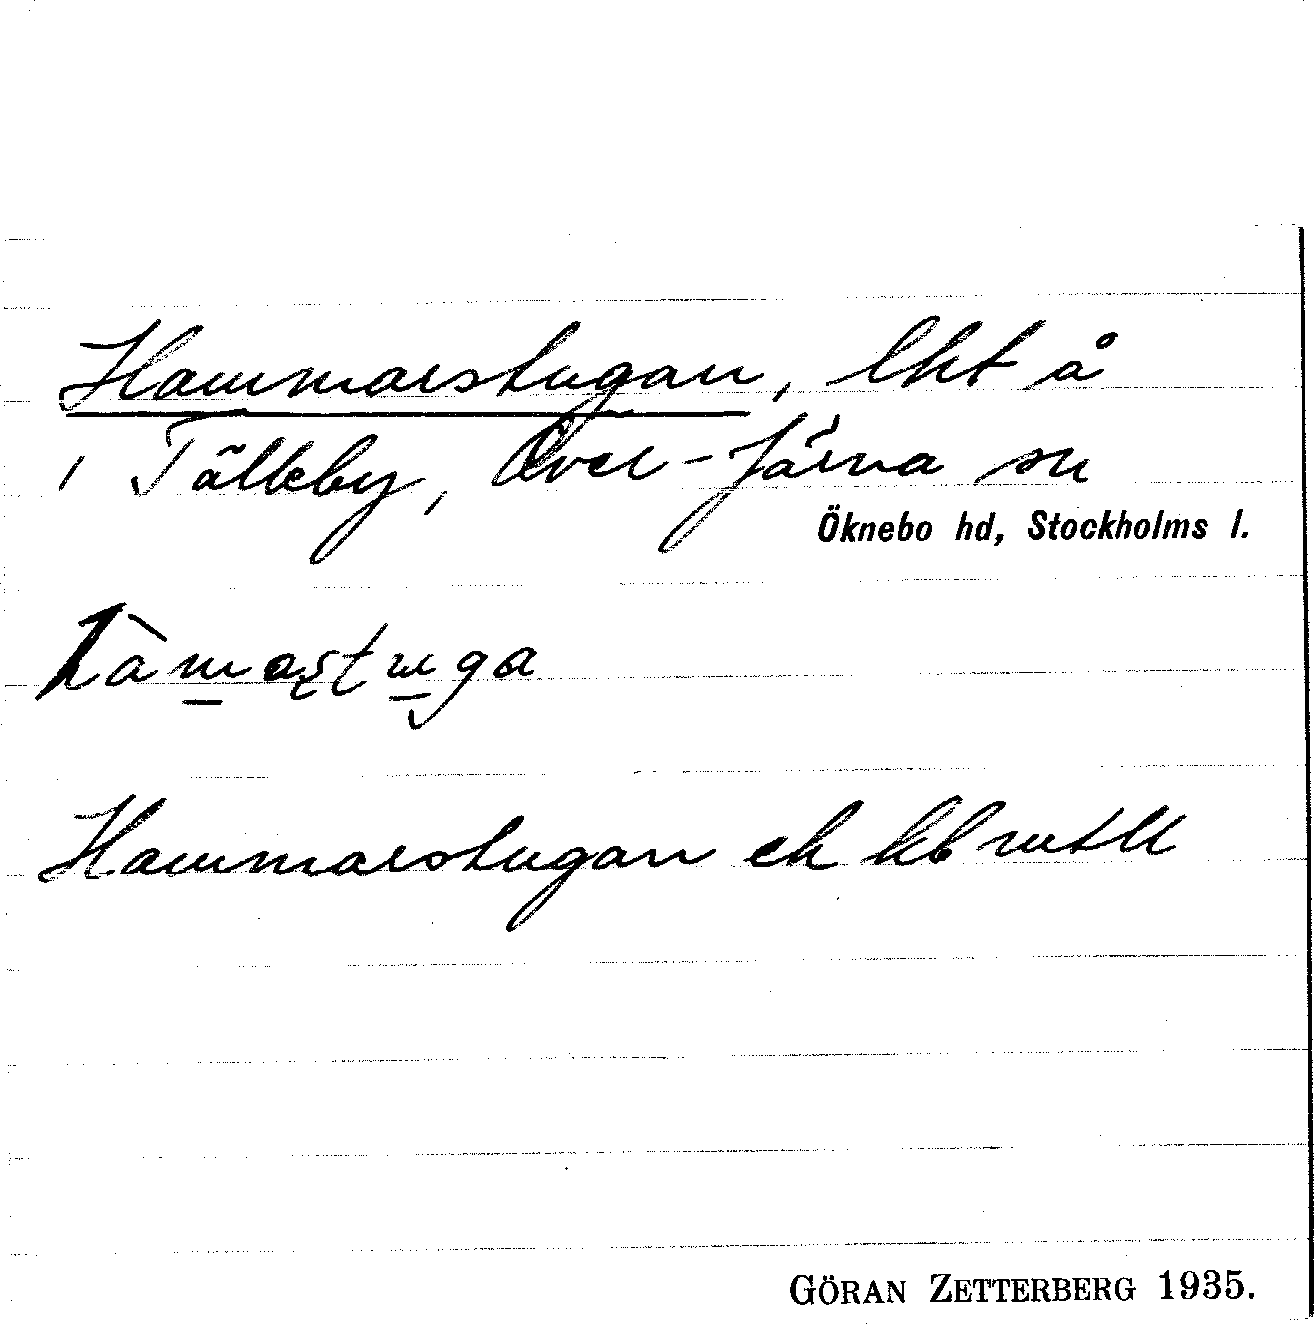 Hammarstugan, lht å
i Tälleby, Över-Järna sn
Öknebo hd, Stockholms l.
Hammarstugan ek kb mtll
GÖRAN ZETTERBERG 1935.